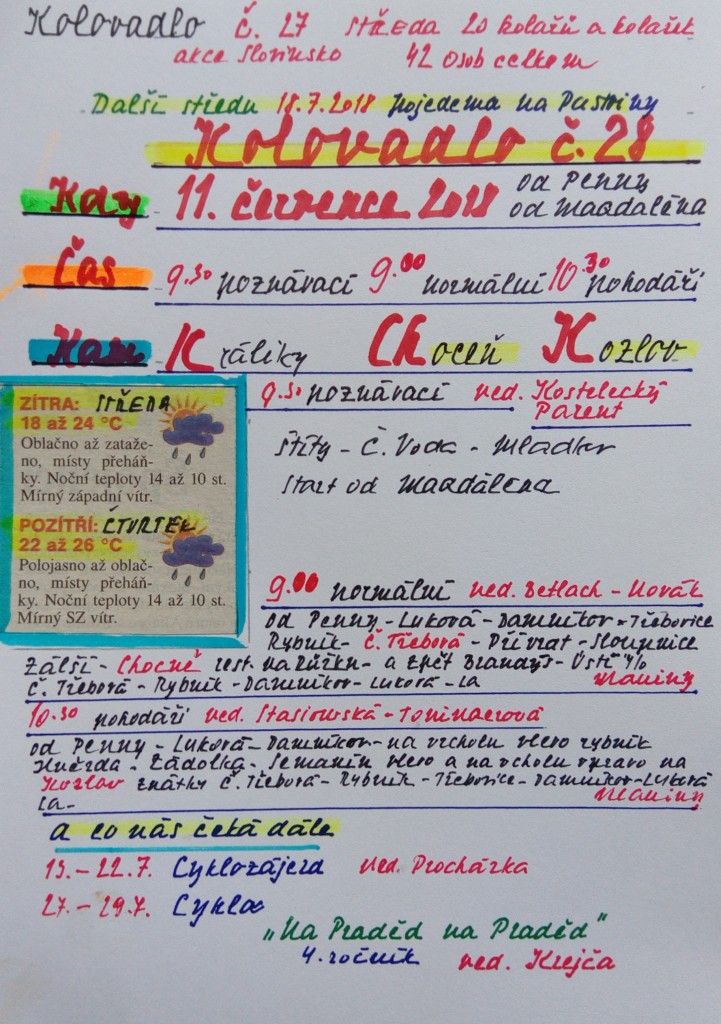 Kolovadlo č. 27 středa 20 kolařů a kolařek
akce Slovinsko 42 osob celkem
Další středu 18.7.2018 pojedema na Pastviny
Kolovadlo č. 28
Kdy 11. července 2018 od Penny
od Magdaléna
Čas 9.30 poznávací 9.00 normální 10.30 pohodáři
Kam Králiky Choceň Kozlov
9.30 poznávací ved. Kostelecký
Parent
ZÍTRA: STŘEDA
18 až 24 °C
Oblačno až zataže-
no, místy přeháň-
ky. Noční teploty 14 až 10 st.
Mírný západní vítr.
POZÍTŘÍ: ČTVRTEK
22 až 26 °C
Polojasno až oblač-
no, místy přeháň-
ky. Noční teploty 14 až 10 st.
Mírný SZ vítr.
Štíty - Č. Voda - Mladkov
start od Magdaléna
9.00 normální ved. Betlach - Novák
od Penny - Luková - Damníkov - Třebovice
Rybník - Č. Třebová - Přívrat - Sloupnice
Zálší - Chocně rest. na Růžku - a zpět Brandýs - Ústí n/o
Č. Třebová - Rybník - Damníkov - Luková - La Maniny
10.30 pohodáři ved. Stasiowská - Tomingerová
od Penny - Luková - Damníkov - na vrcholu vlevo rybník
Hvězda - Zádolka - Semanín vlevo a na vrcholu vpravo na
Kozlov zpátky Č. Třebová - Rybník - Třebovice - Damníkov - Luková
La - Maniny
a co nás čeká dále
15. - 22.7. Cyklozájezd ved. Procházka
27. - 29.7. Cyklo
"Na Praděd na Praděd"
4. ročník ved. Krejča